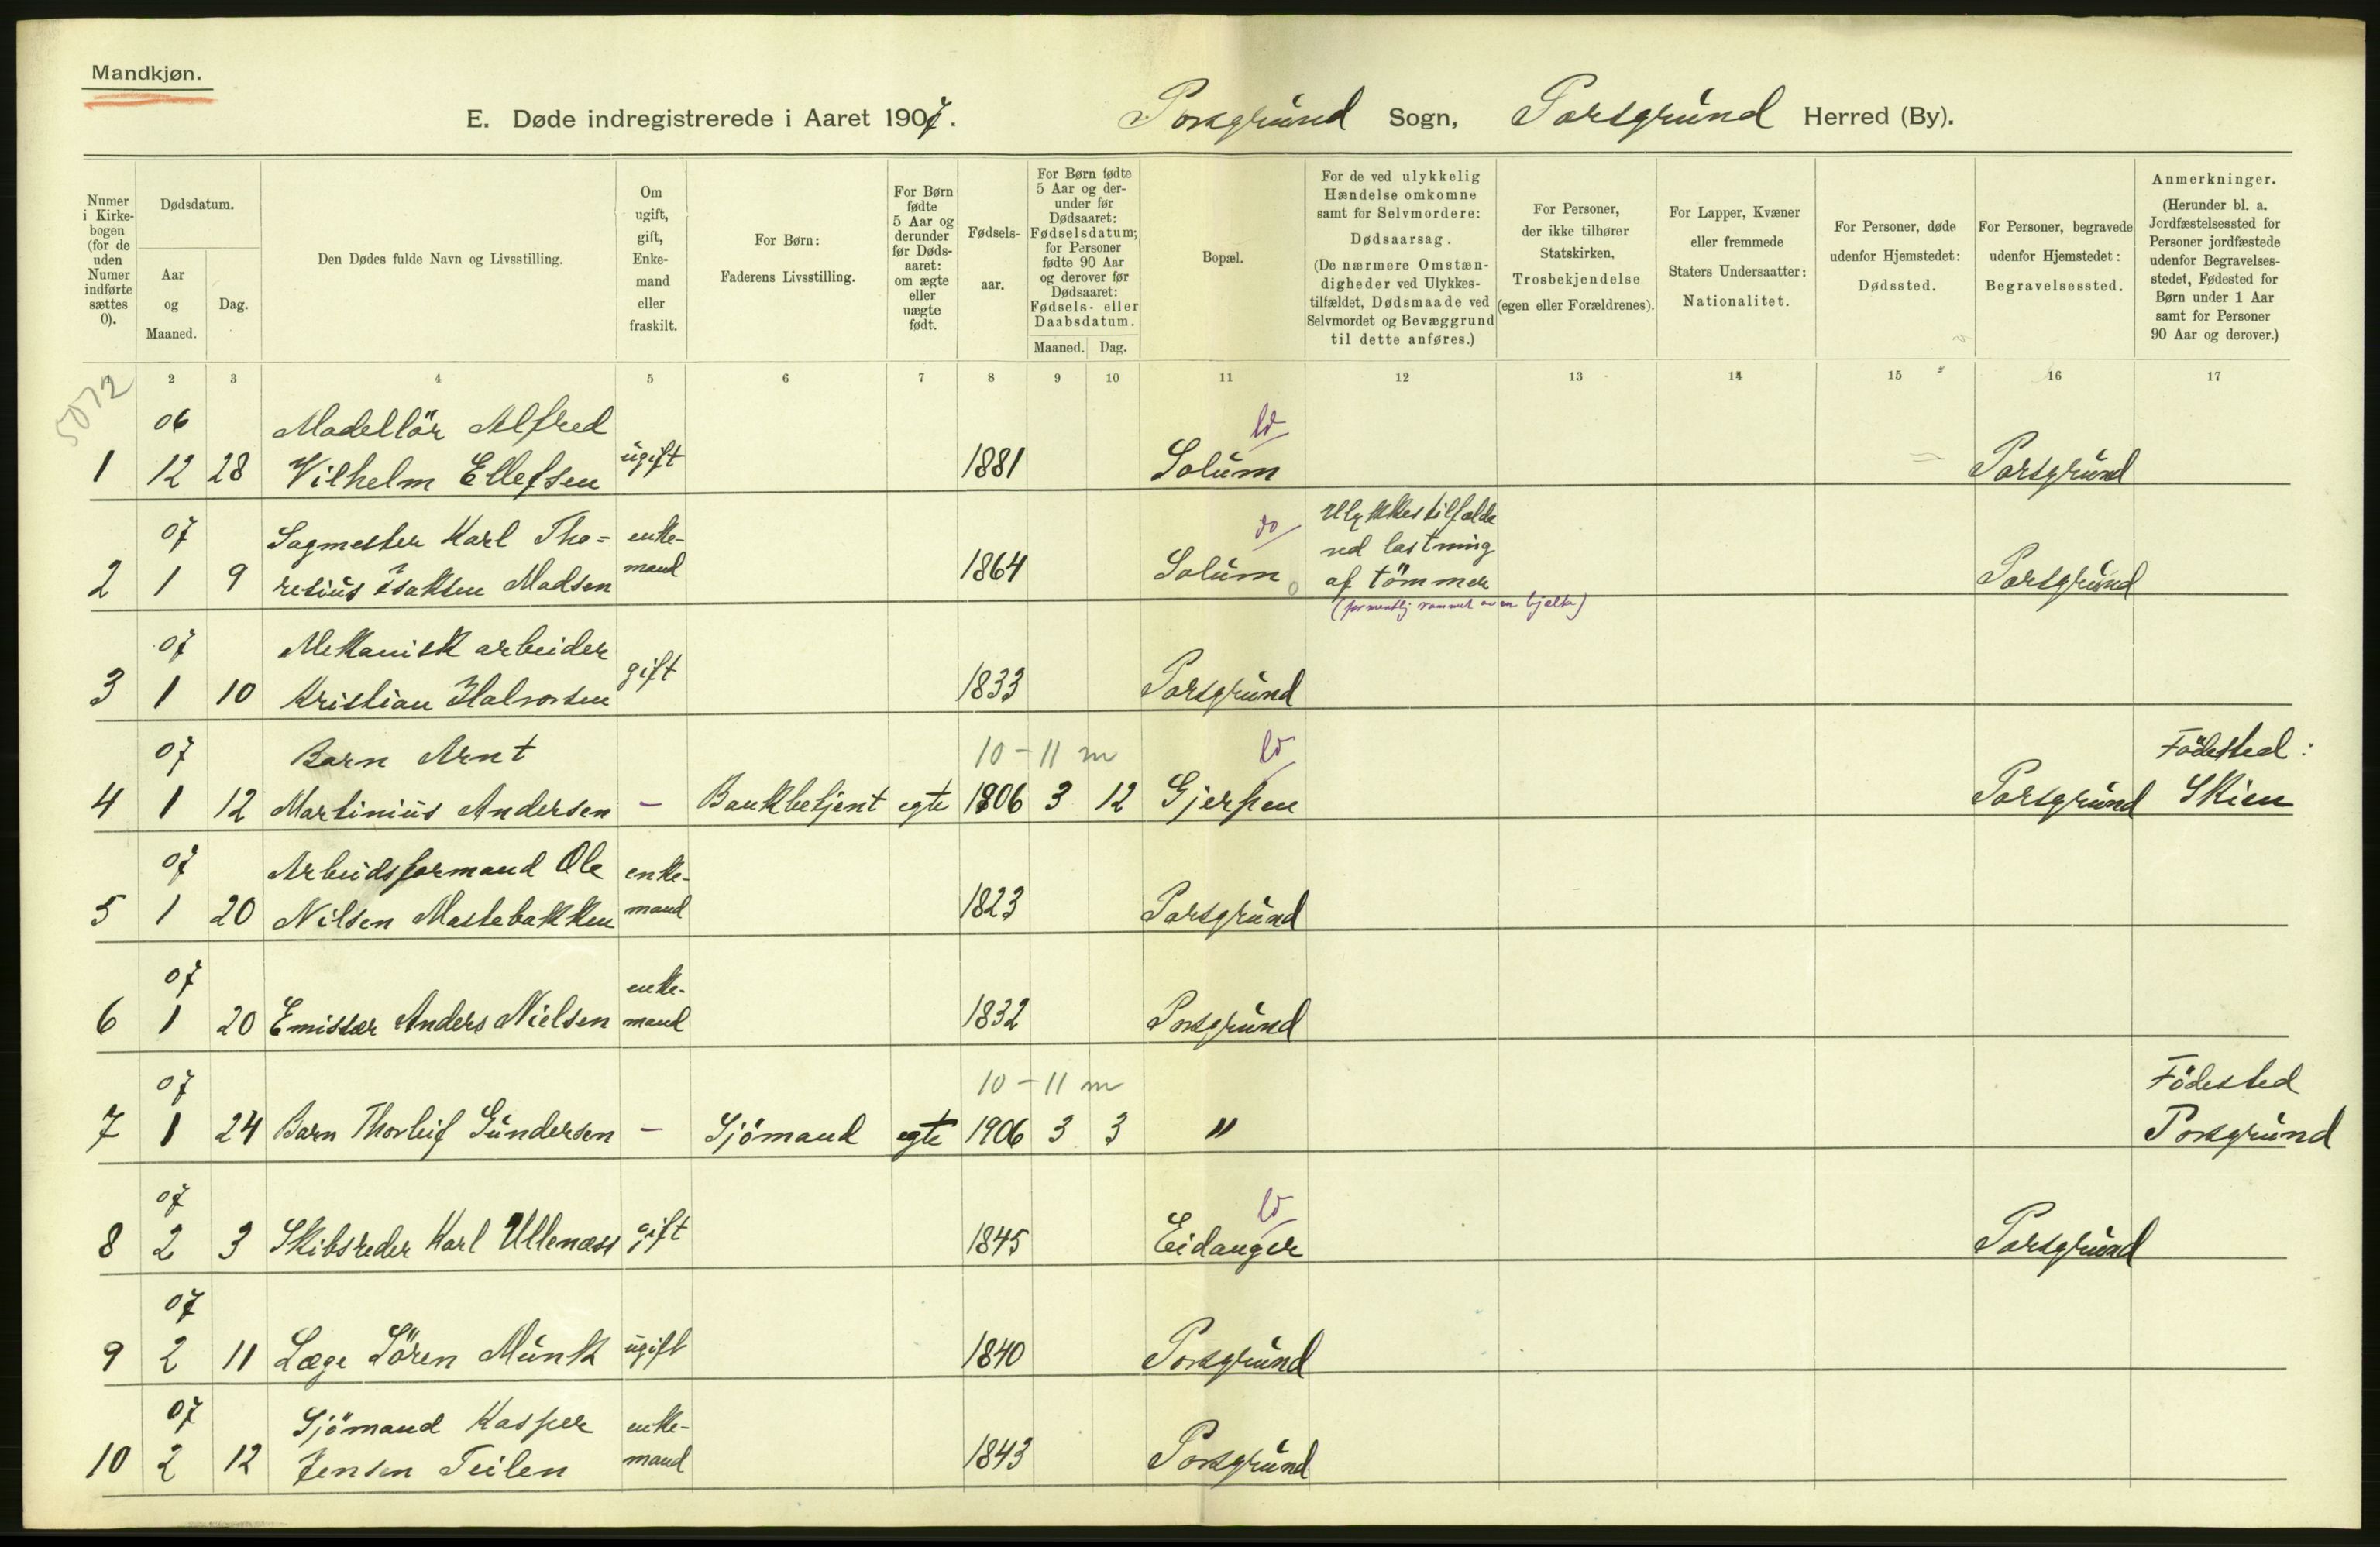 Mandkjøn.
E. Døde indregistrerede i Aaret 1907. Porsgrund Sogn, Porsgrund Herred (By).
Numer i Kirke-bogen (for de uden Numer indførte sættes 0).
Dødsdatum.
Aar og Maaned.
Dag.
Den Dødes fulde Navn og Livsstilling.
Om ugift, gift, Enke-mand eller fraskilt.
For Børn: Faderens Livsstilling.
For Børn fødte 5 Aar og derunder før Døds-aaret: om ægte eller uægte født.
Fødsels-aar.
For Børn fødte 5 Aar og der-under før Dødsaaret: Fødselsdatum; for Personer fødte 90 Aar og derover før Dødsaaret: Fødsels- eller Daabsdatum.
Maaned. Dag.
Bopæl.
For de ved ulykkelig Hændelse omkomne samt for Selvmordere: Dødsaarsag. (De nærmere Omstæn-digheder ved Ulykkes-tilfældet, Dødsmaade ved Selvmordet og Bevæggrund til dette anføres.)
For Personer, der ikke tilhører Statskirken, Trosbekjendelse (egen eller Forældrenes).
For Lapper, Kvæner eller fremmede Staters Undersaatter: Nationalitet.
For Personer, døde udenfor Hjemstedet: Dødssted.
For Personer, begravede udenfor Hjemstedet: Begravelsessted.
Anmerkninger. (Herunder bl. a. Jordfæstelsessted for Personer jordfæstede udenfor Begravelses-stedet, Fødested for Børn under 1 Aar samt for Personer 90 Aar og derover.)
2 3 4 5 6 7 8 9 10 11 12 13 14 15 16 17
5072
06 Modellör Alfred
1 12 28 Vilhelm Ellefsen ugift 1881 Solum Porsgrund
07 Sagmester Karl Tho= enke- Ulykkestilfælde
ved lastning
2 1 9 resius Isaksen Madsen mand 1864 Solum af tömmer Porsgrund
(formentlig rammet av en bjelke)
07 Mekanisk arbeider
3 1 10 Kristian Halvorsen gift 1833 Porsgrund
07 Barn Arnt 10-11 m Födested:
4 1 12 Martinius Andersen - Bankbetjent egte 1906 3 12 Gjerpen Porsgrund Skien
07 Arbeidsformand Ole enke-
5 1 20 Nilsen Mastebakken mand 1823 Porsgrund
07 enke-
6 1 20 Emissær Anders Nielsen mand 1832 Porsgrund
07 10-11 m Födested
7 1 24 Barn Thorleif Gundersen - Sjömand egte 1906 3 3 " Porsgrund
07
8 2 3 Skibsreder Karl Ullenæss gift 1845 Eidanger Porsgrund
07
9 2 11 Læge Sören Munk ugift 1840 Porsgrund
07 Sjömand Kasper enke-
10 2 12 Jensen Teilen mand 1843 Porsgrund